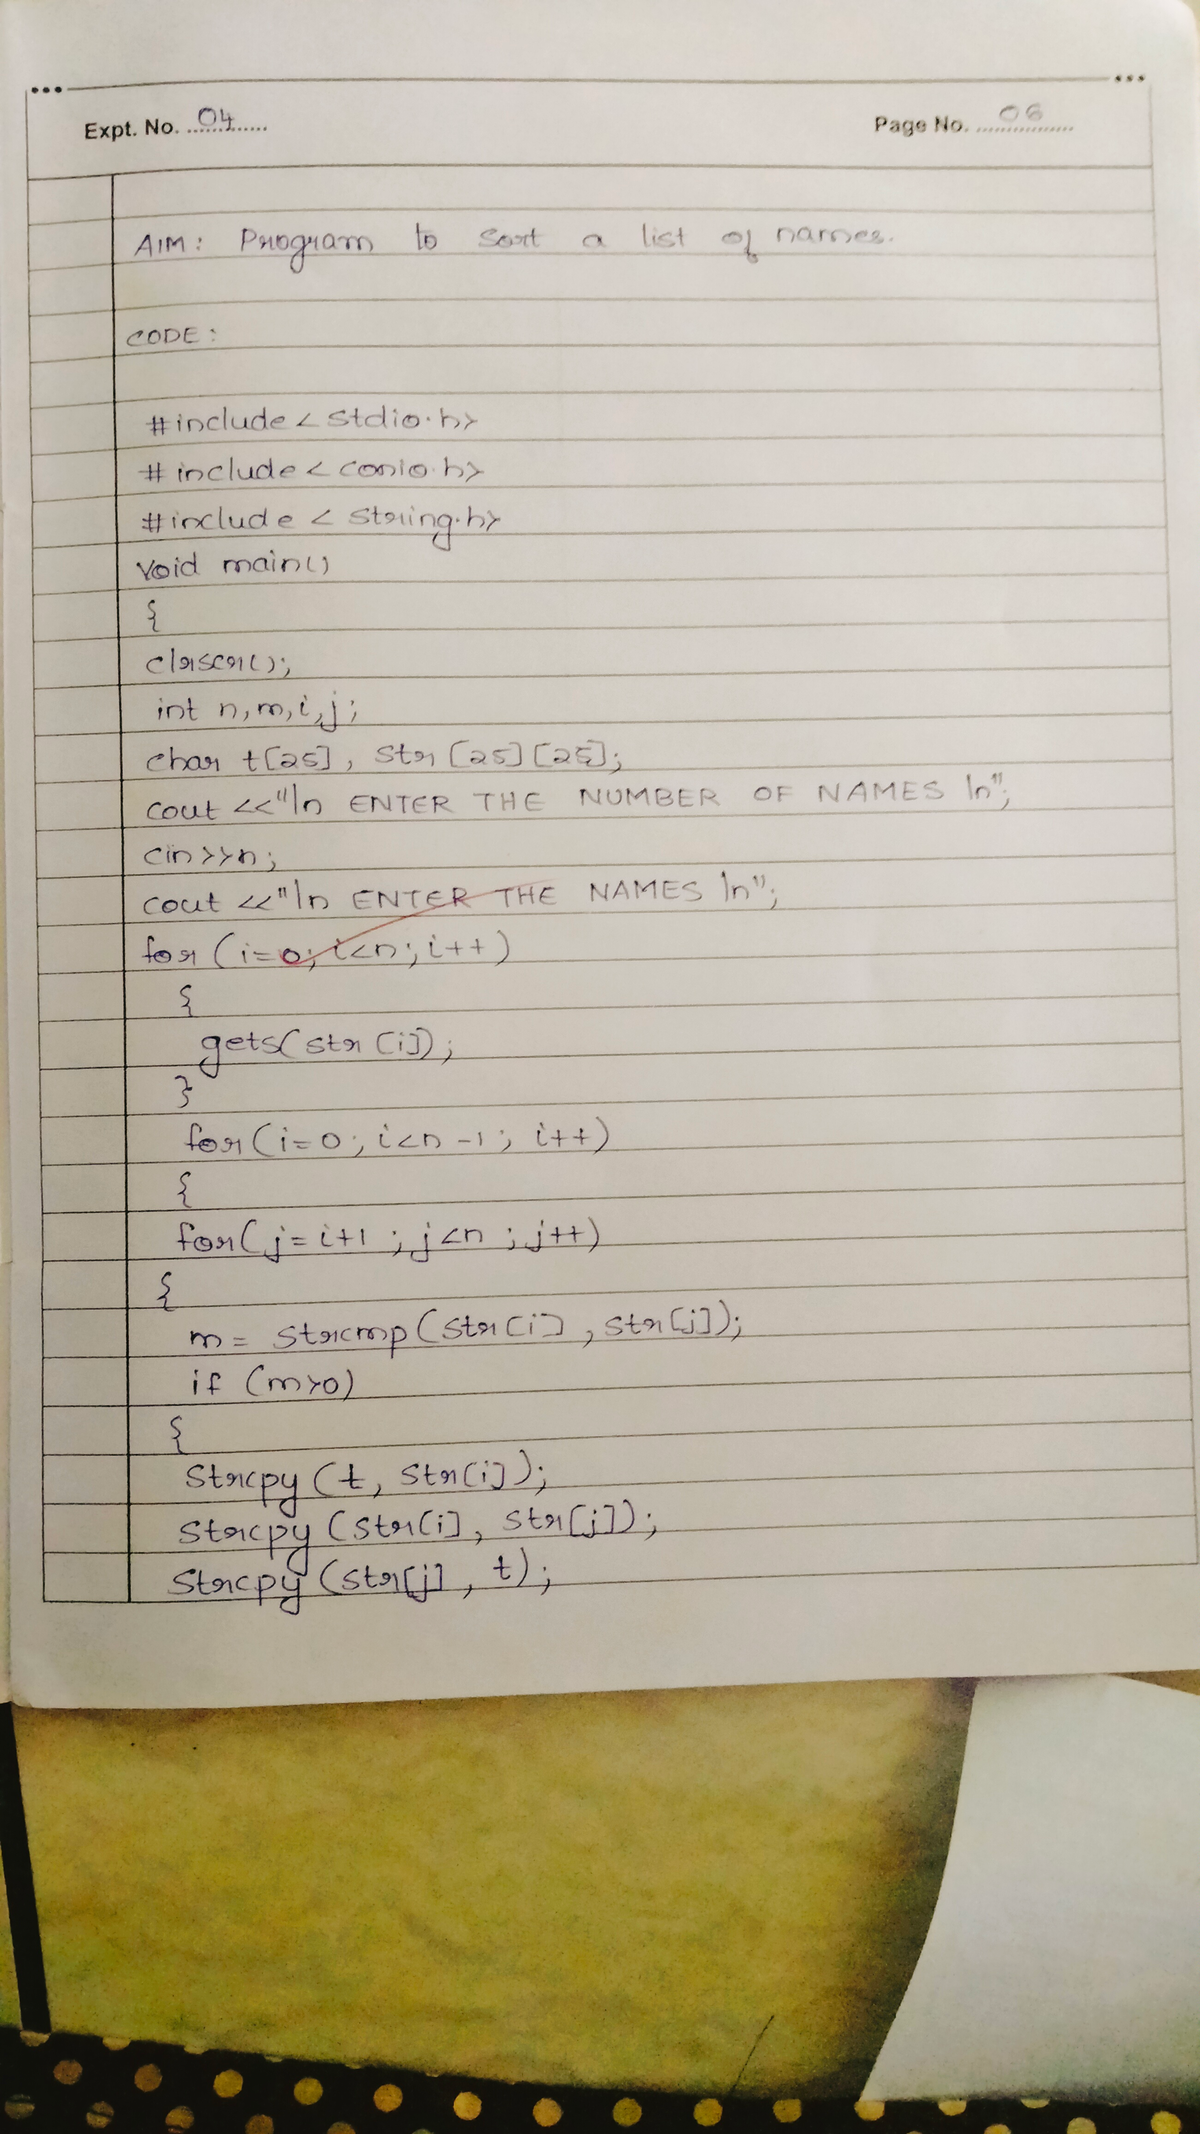 Expt. No. 04
Page No. 06
AIM: Program to sort a list of names.
CODE:
#include<stdio.h>
#include<conio.h>
#include<string.h>
void main()
{
clrscr();
int n,m,i,j;
char t[25], str[25][25];
cout<<"\n ENTER THE NUMBER OF NAMES \n";
cin>>n;
cout<<"\n ENTER THE NAMES \n";
for(i=0; i<n; i++)
{
gets(str[i]);
}
for(i=0; i<n-1; i++)
{
for(j=i+1; j<n; j++)
{
m= strcmp(str[i], str[j]);
if (m>0)
{
strcpy(t, str[i]);
strcpy(str[i], str[j]);
strcpy(str[j], t);